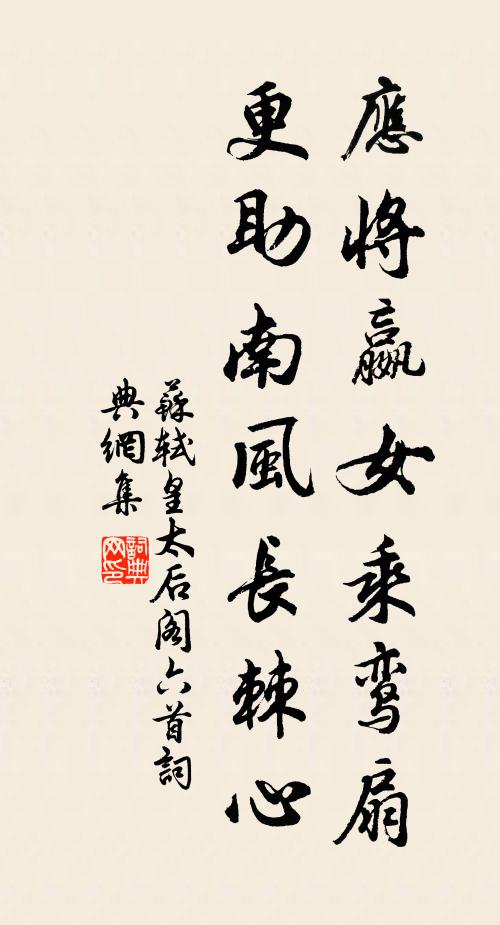 應將嬴女乘鸾扇
更助南風長棘心
蘇軾皇太后阁六首詞
典網集
詞典
网印